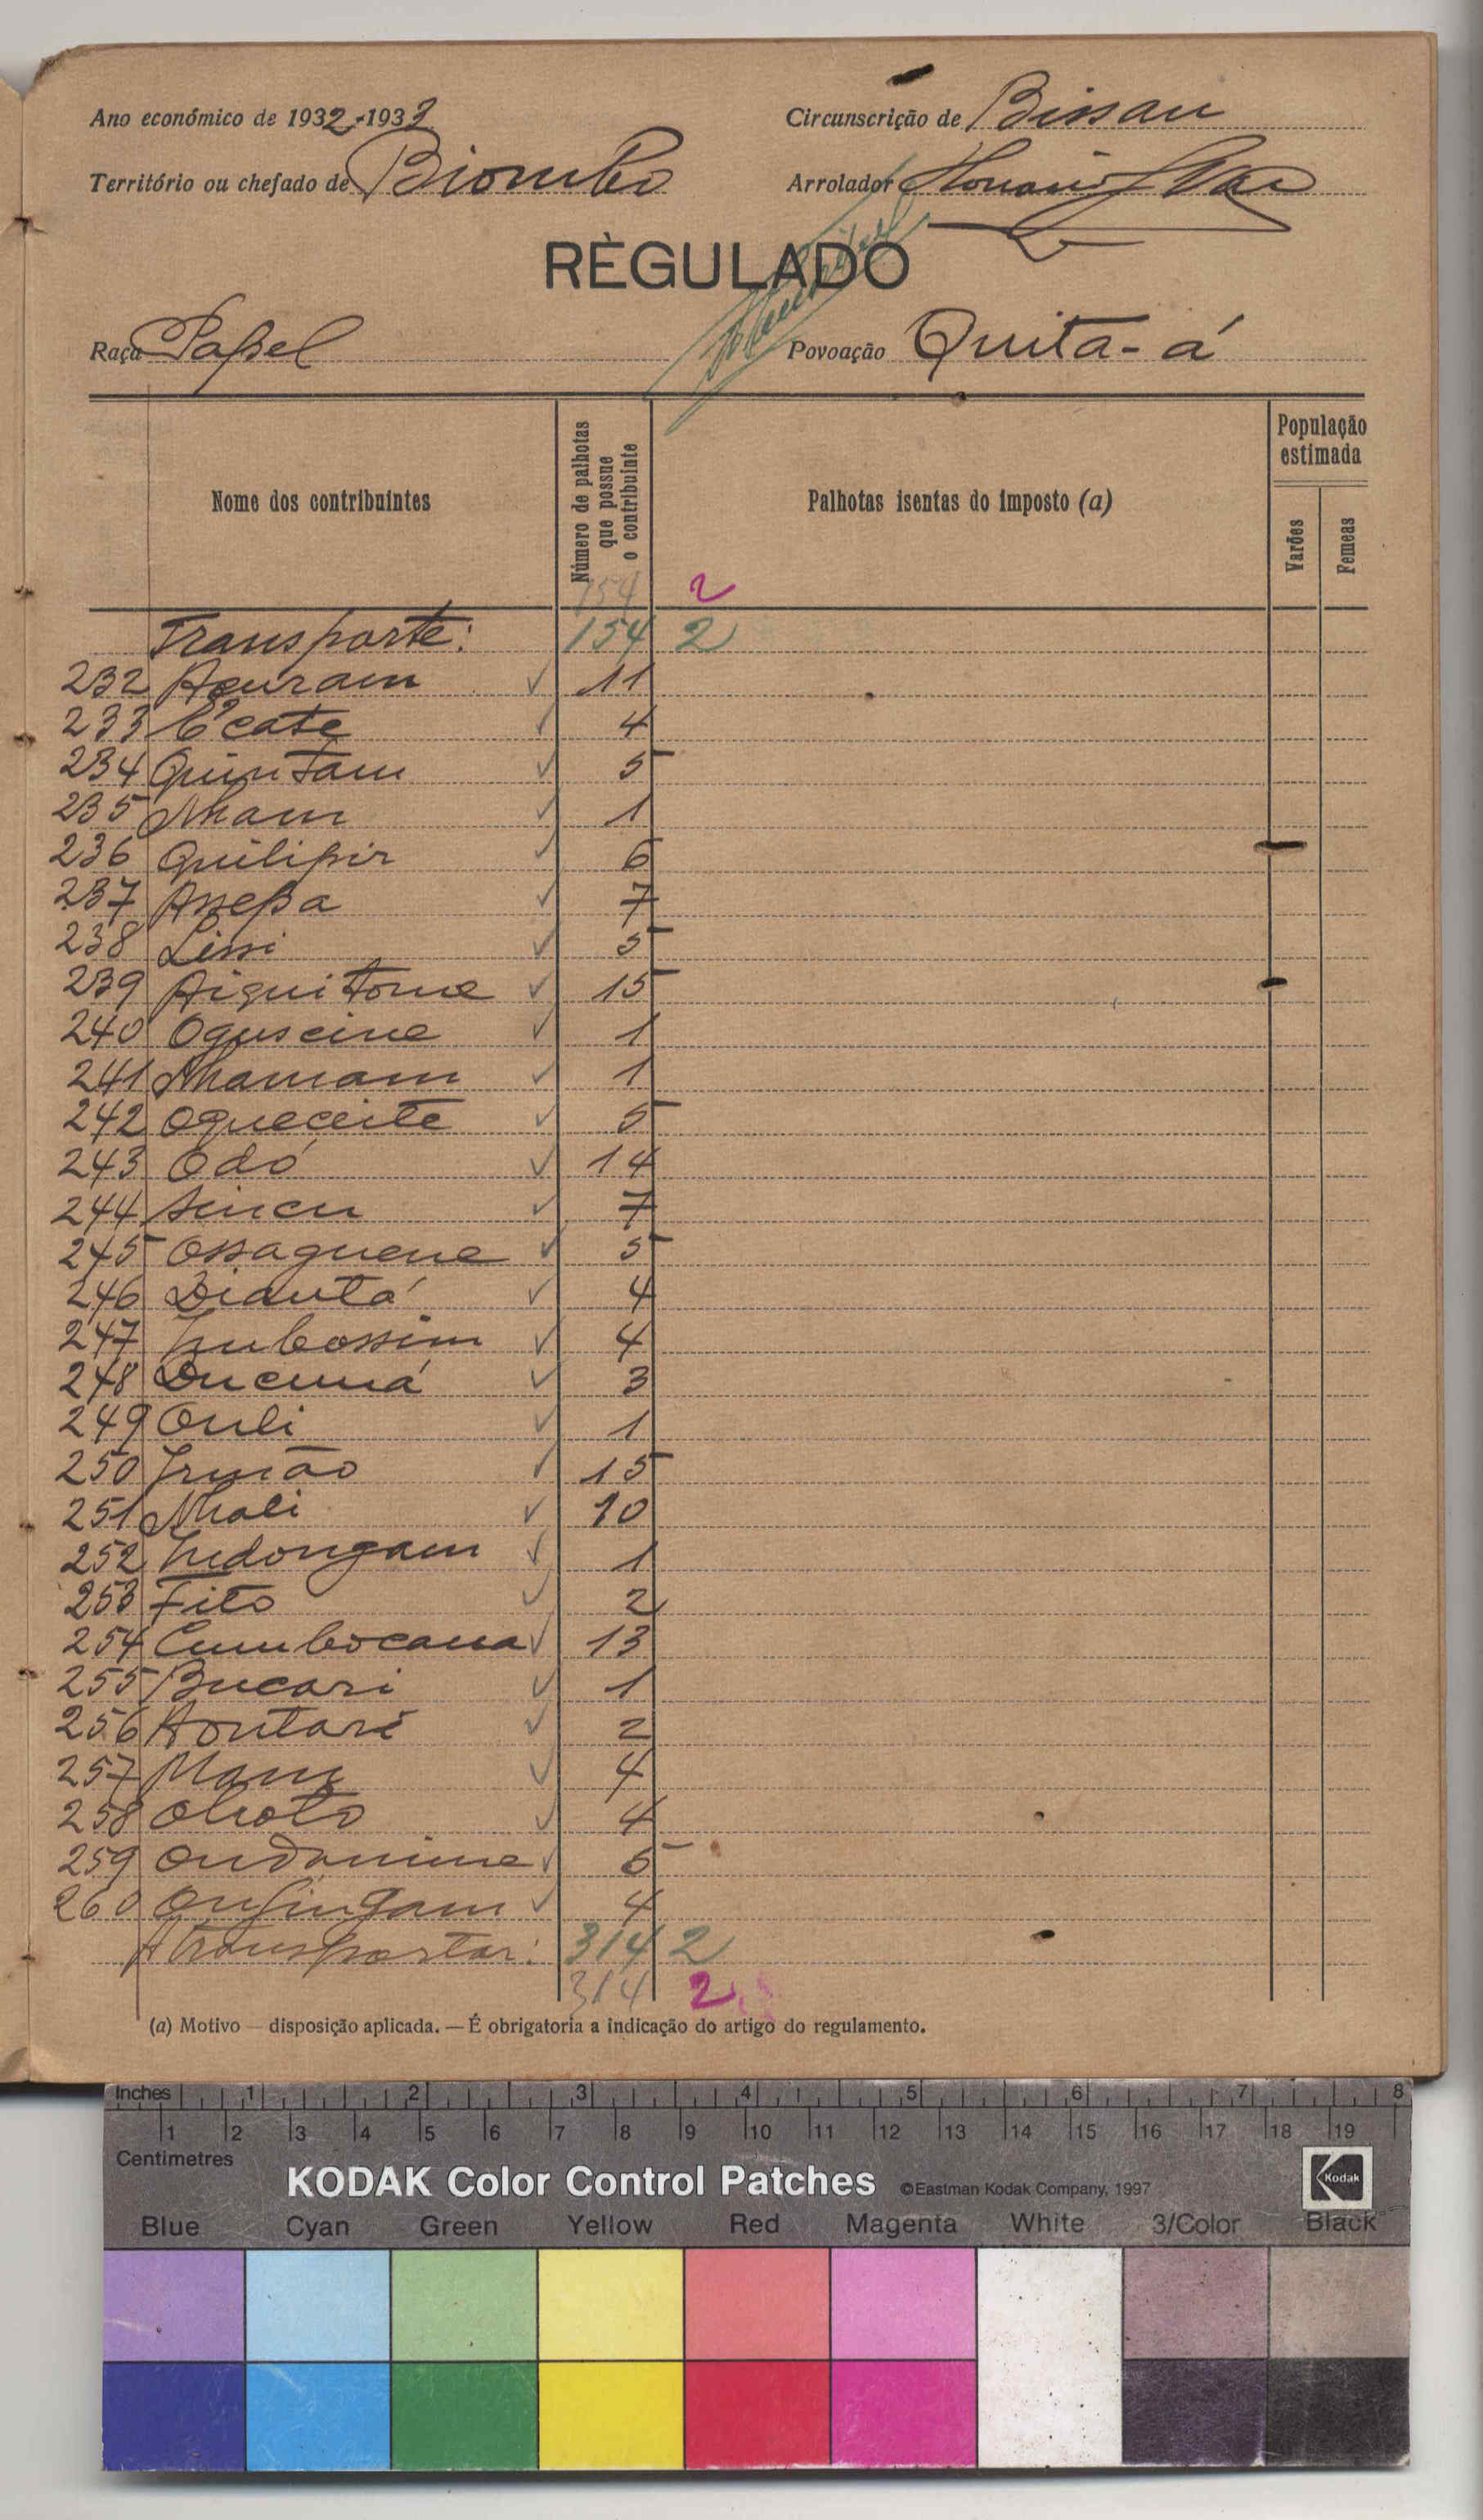 Ano económico de 1932-1933
Circunscrição de Bissau
Território ou chefado de Biombo
Arrolador
RÈGULADO
Raça Papel
Povoação Quita-á
Nome dos contribuintes
Número de palhotas que possue o contribuinte
Palhotas isentas do imposto (a)
População estimada
Varões
Femeas
154 2
Transporte: 154 2
232 11
233 4
234 Quintam 5
235 Nham 1
236 Quilipir 6
237 7
238 Lissi 5
239 15
240 1
241 Nhamam 1
242 Oqueceite 5
243 Odó 14
244 7
245 Ossaguene 5
246 4
247 4
248 3
249 Onli 1
250 Irmão 15
251 Nhali 10
252 1
253 Fito 2
254 Cumbocana 13
255 Bucari 1
256 2
257 4
258 4
259 5
260 4
A transportar: 314 2
314 2
(a) Motivo — disposição aplicada. — É obrigatoria a indicação do artigo do regulamento.
Inches 1 2 3 4 5 6 7 8
1 2 3 4 5 6 7 8 9 10 11 12 13 14 15 16 17 18 19
Centimetres
KODAK Color Control Patches ©Eastman Kodak Company, 1997 Kodak
Blue Cyan Green Yellow Red Magenta White 3/Color Black